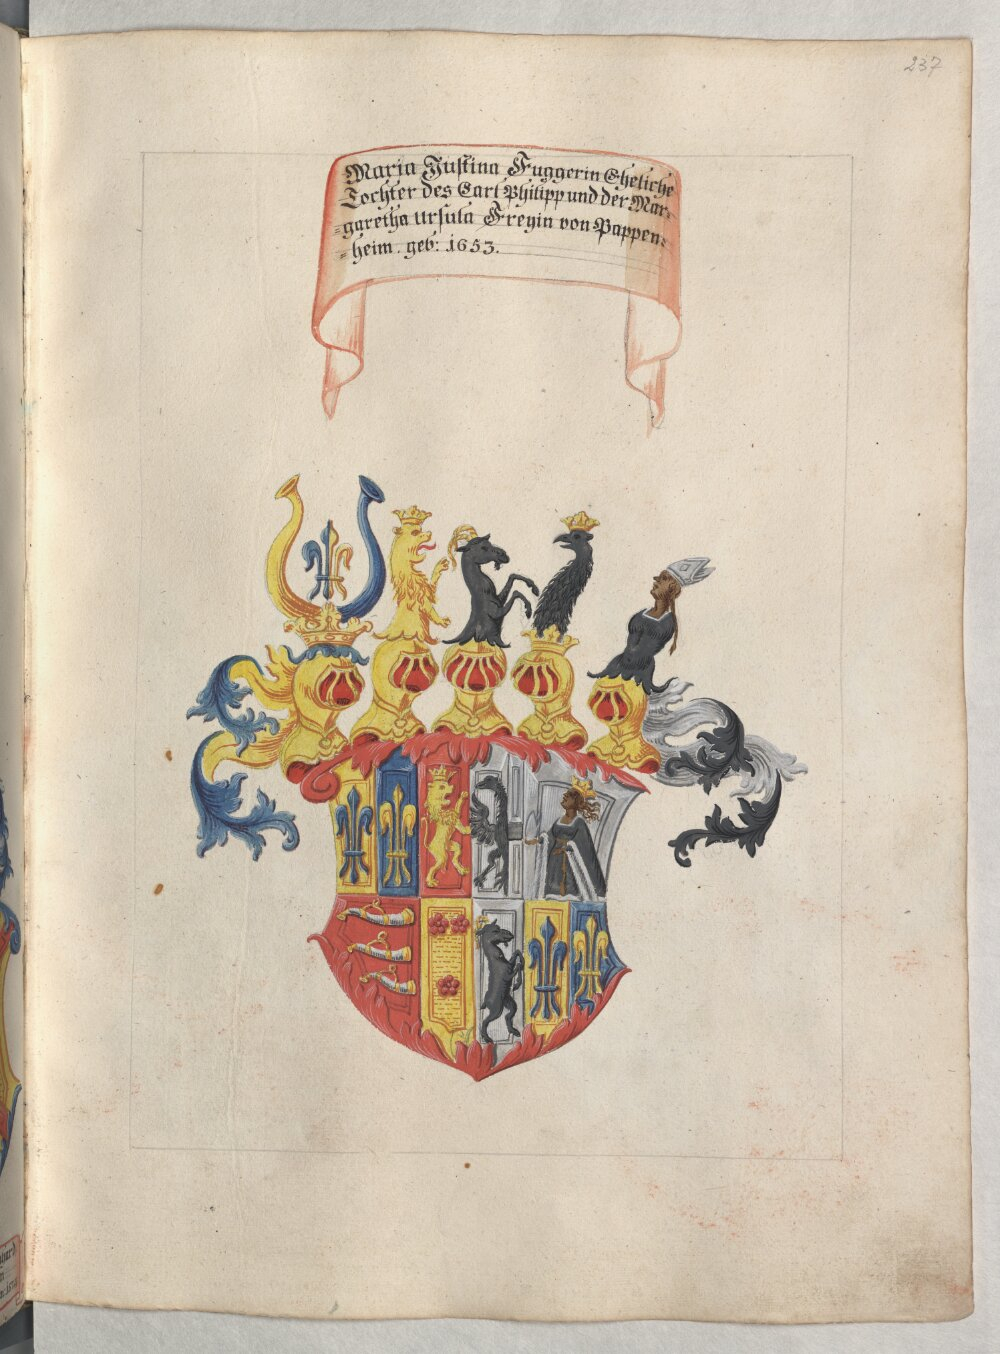 237
Maria Justina Fuggerin Eheliche
Tochter des Carl Philipp und der Mar-
=garetha Ursula Freyin von Pappen=
=heim. geb: 1653.